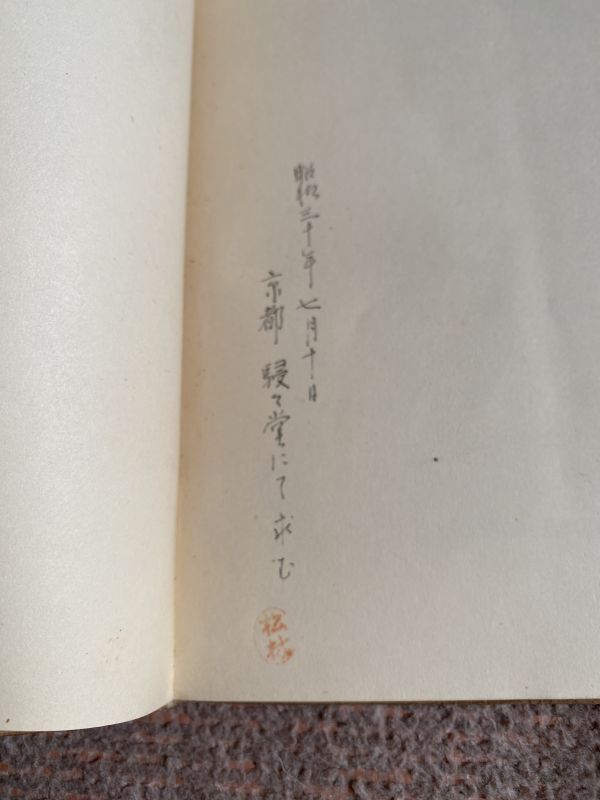 昭和三十年七月十日
京都 駸々堂にて求む
松村